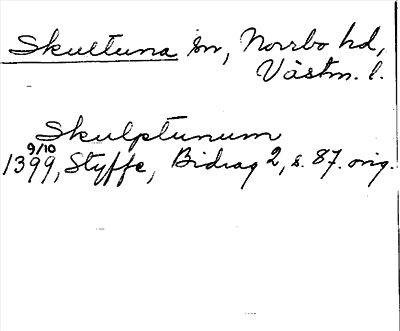 Skultuna sn, Norrbo hd,
Västm. l.
Skulptunum
9/10
1399, Styffe, Bidrag 2, s. 87. orig.